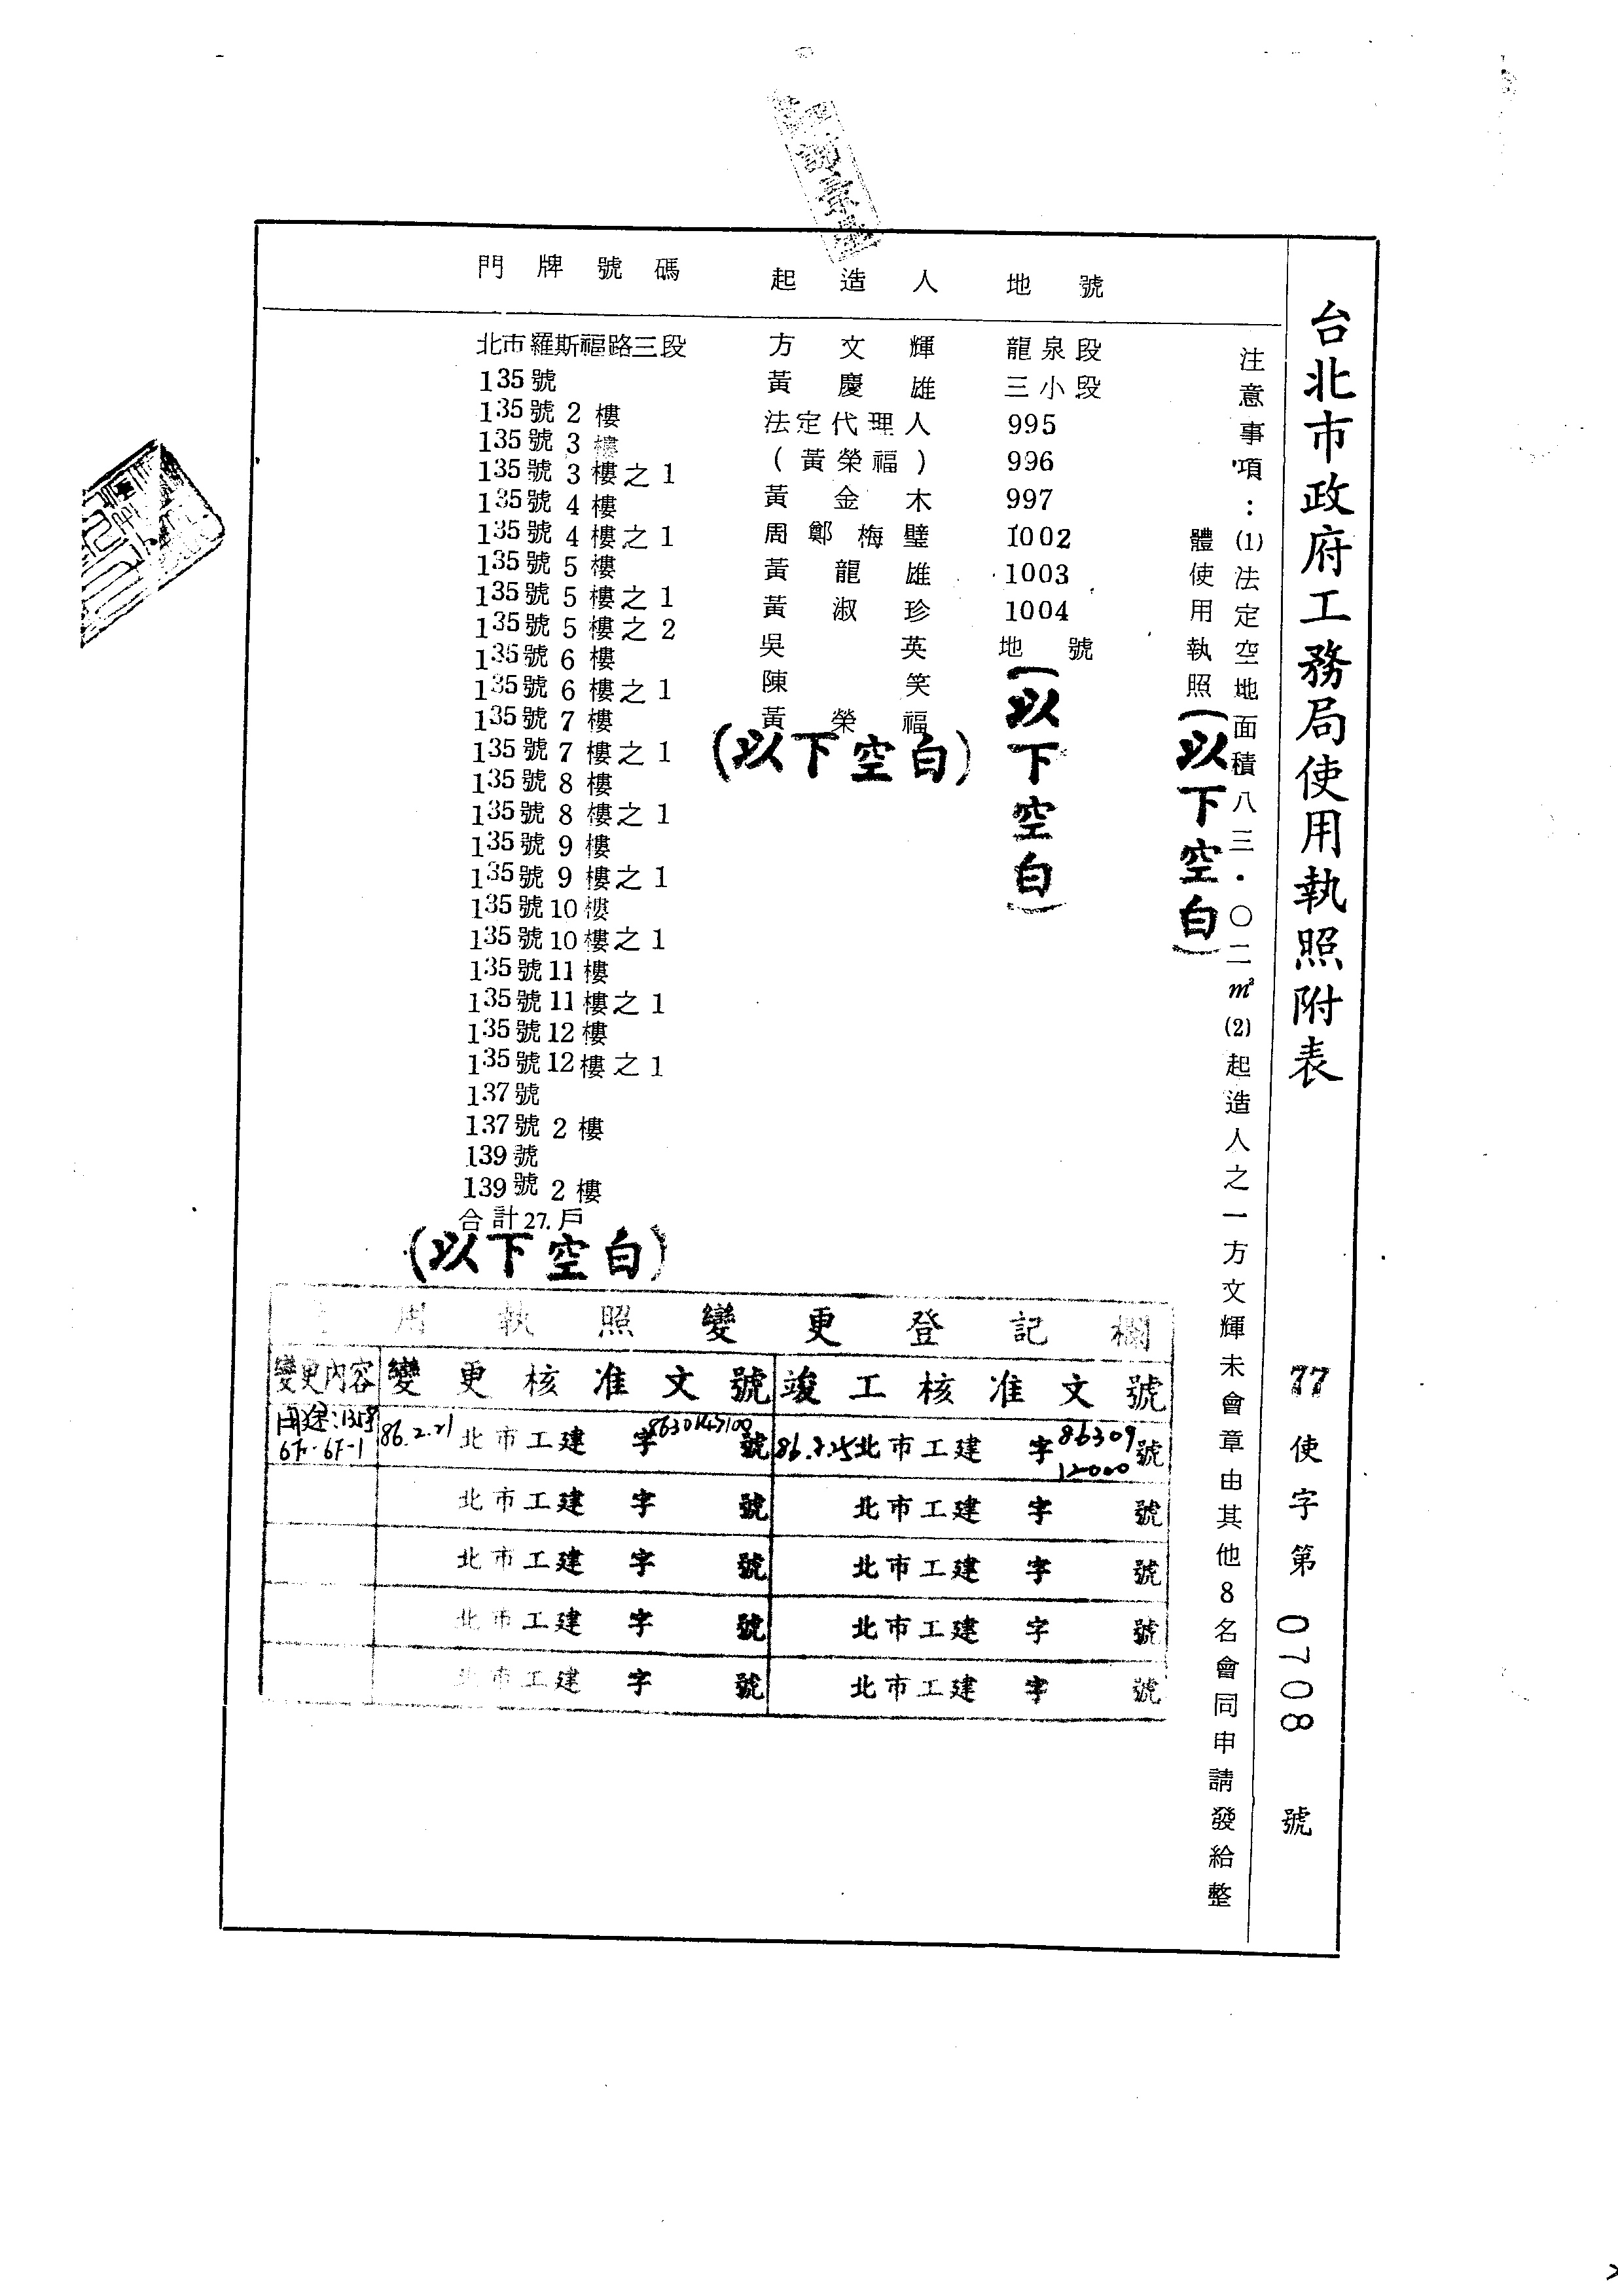 台北市政府工務局使用執照附表
77使字第0708號
注意事項：(1)法定空地面積八三．〇二m²(2)起造人之一方文輝未會章由其他8名會同申請發給整
體使用執照(以下空白)
門牌號碼 起造人 地號
北市羅斯福路三段
135號
135號2樓
135號3樓
135號3樓之1
135號4樓
135號4樓之1
135號5樓
135號5樓之1
135號5樓之2
135號6樓
135號6樓之1
135號7樓
135號7樓之1
135號8樓
135號8樓之1
135號9樓
135號9樓之1
135號10樓
135號10樓之1
135號11樓
135號11樓之1
135號12樓
135號12樓之1
137號
137號2樓
139號
139號2樓
合計27.戶
(以下空白)
方文輝
黃慶雄
法定代理人
(黃榮福)
黃金木
周鄭梅璧
黃龍雄
黃淑珍
吳英
陳笑
黃榮福
(以下空白)
龍泉段
三小段
995
996
997
1002
1003
1004
地號
(以下空白)
用執照變更登記欄
變更內容 變更核准文號 竣工核准文號
用途:135號 86.2.21 北市工建 字 號 北市工建 字86309 號
6F.6F-1 12000
北市工建 字 號 北市工建 字 號
北市工建 字 號 北市工建 字 號
北市工建 字 號 北市工建 字 號
北市工建 字 號 北市工建 字 號